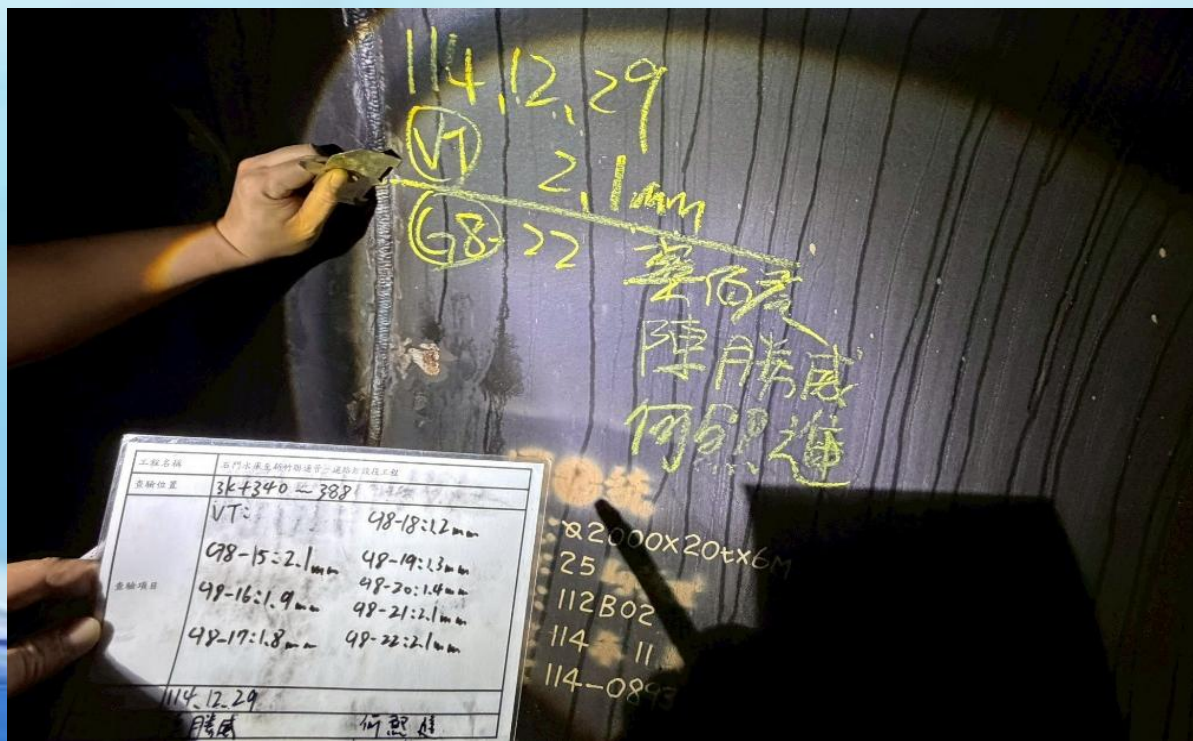 114.12.29
VT
2.1mm
G8-22
陳勝威
何熙進
⌀2000×20t×6M
25
112B02
114 11
114-089
工程名稱
石門水庫至新竹聯通管
工程
查驗位置
3K+340～388
查驗項目
VT:
G8-15:2.1mm
G8-16:1.9mm
G8-17:1.8mm
G8-18:1.2mm
G8-19:1.3mm
G8-20:1.4mm
G8-21:2.1mm
G8-22:2.1mm
114.12.29
勝威
何熙進